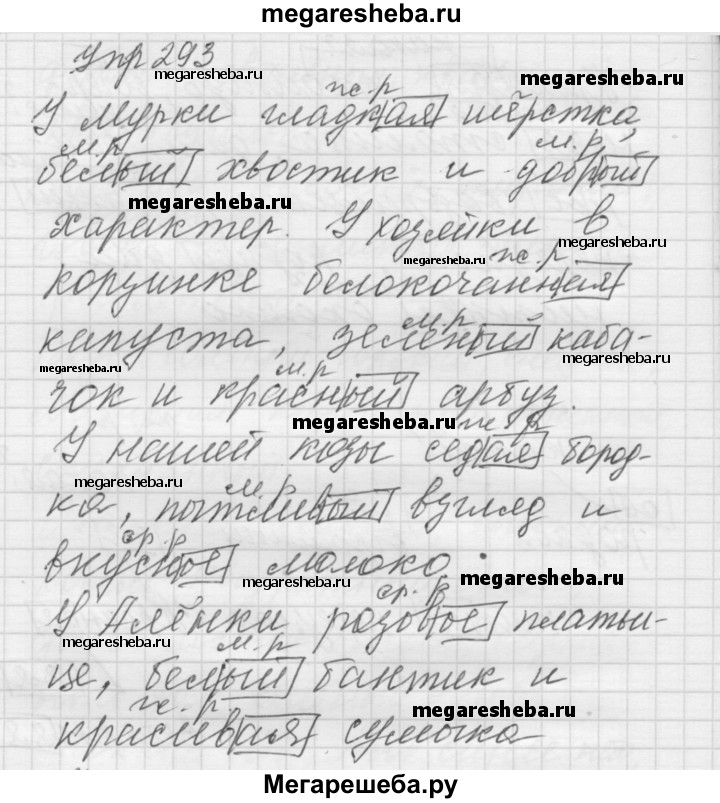 megaresheba.ru
Упр 293
megaresheba.ru
megaresheba.ru
ж. р
У Мурки гладкая шёрстка,
м. р. м. р.
белый хвостик и добрый
megaresheba.ru
характер. У хозяйки в
megaresheba.ru
megaresheba.ru ж. р
корзинке белокочанная
м. р
капуста, зелёный каба-
megaresheba.ru
megaresheba.ru м. р
чок и красный арбуз.
megaresheba.ru ж р
У нашей козы седая бород-
megaresheba.ru м. р
ка, пытливый взгляд и
ср. р
вкусное молоко.
megaresheba.ru megaresheba.ru
ср. р
У Алёнки розовое платьи-
megaresheba.ru м. р
це, белый бантик и
ж. р. megaresheba.ru
красивая сумочка
Мегарешеба.ру